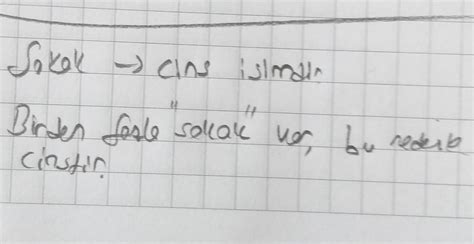 Sokak → cins isimdir
Birden fazla "sokak" var, bu nedenle
cinstir.